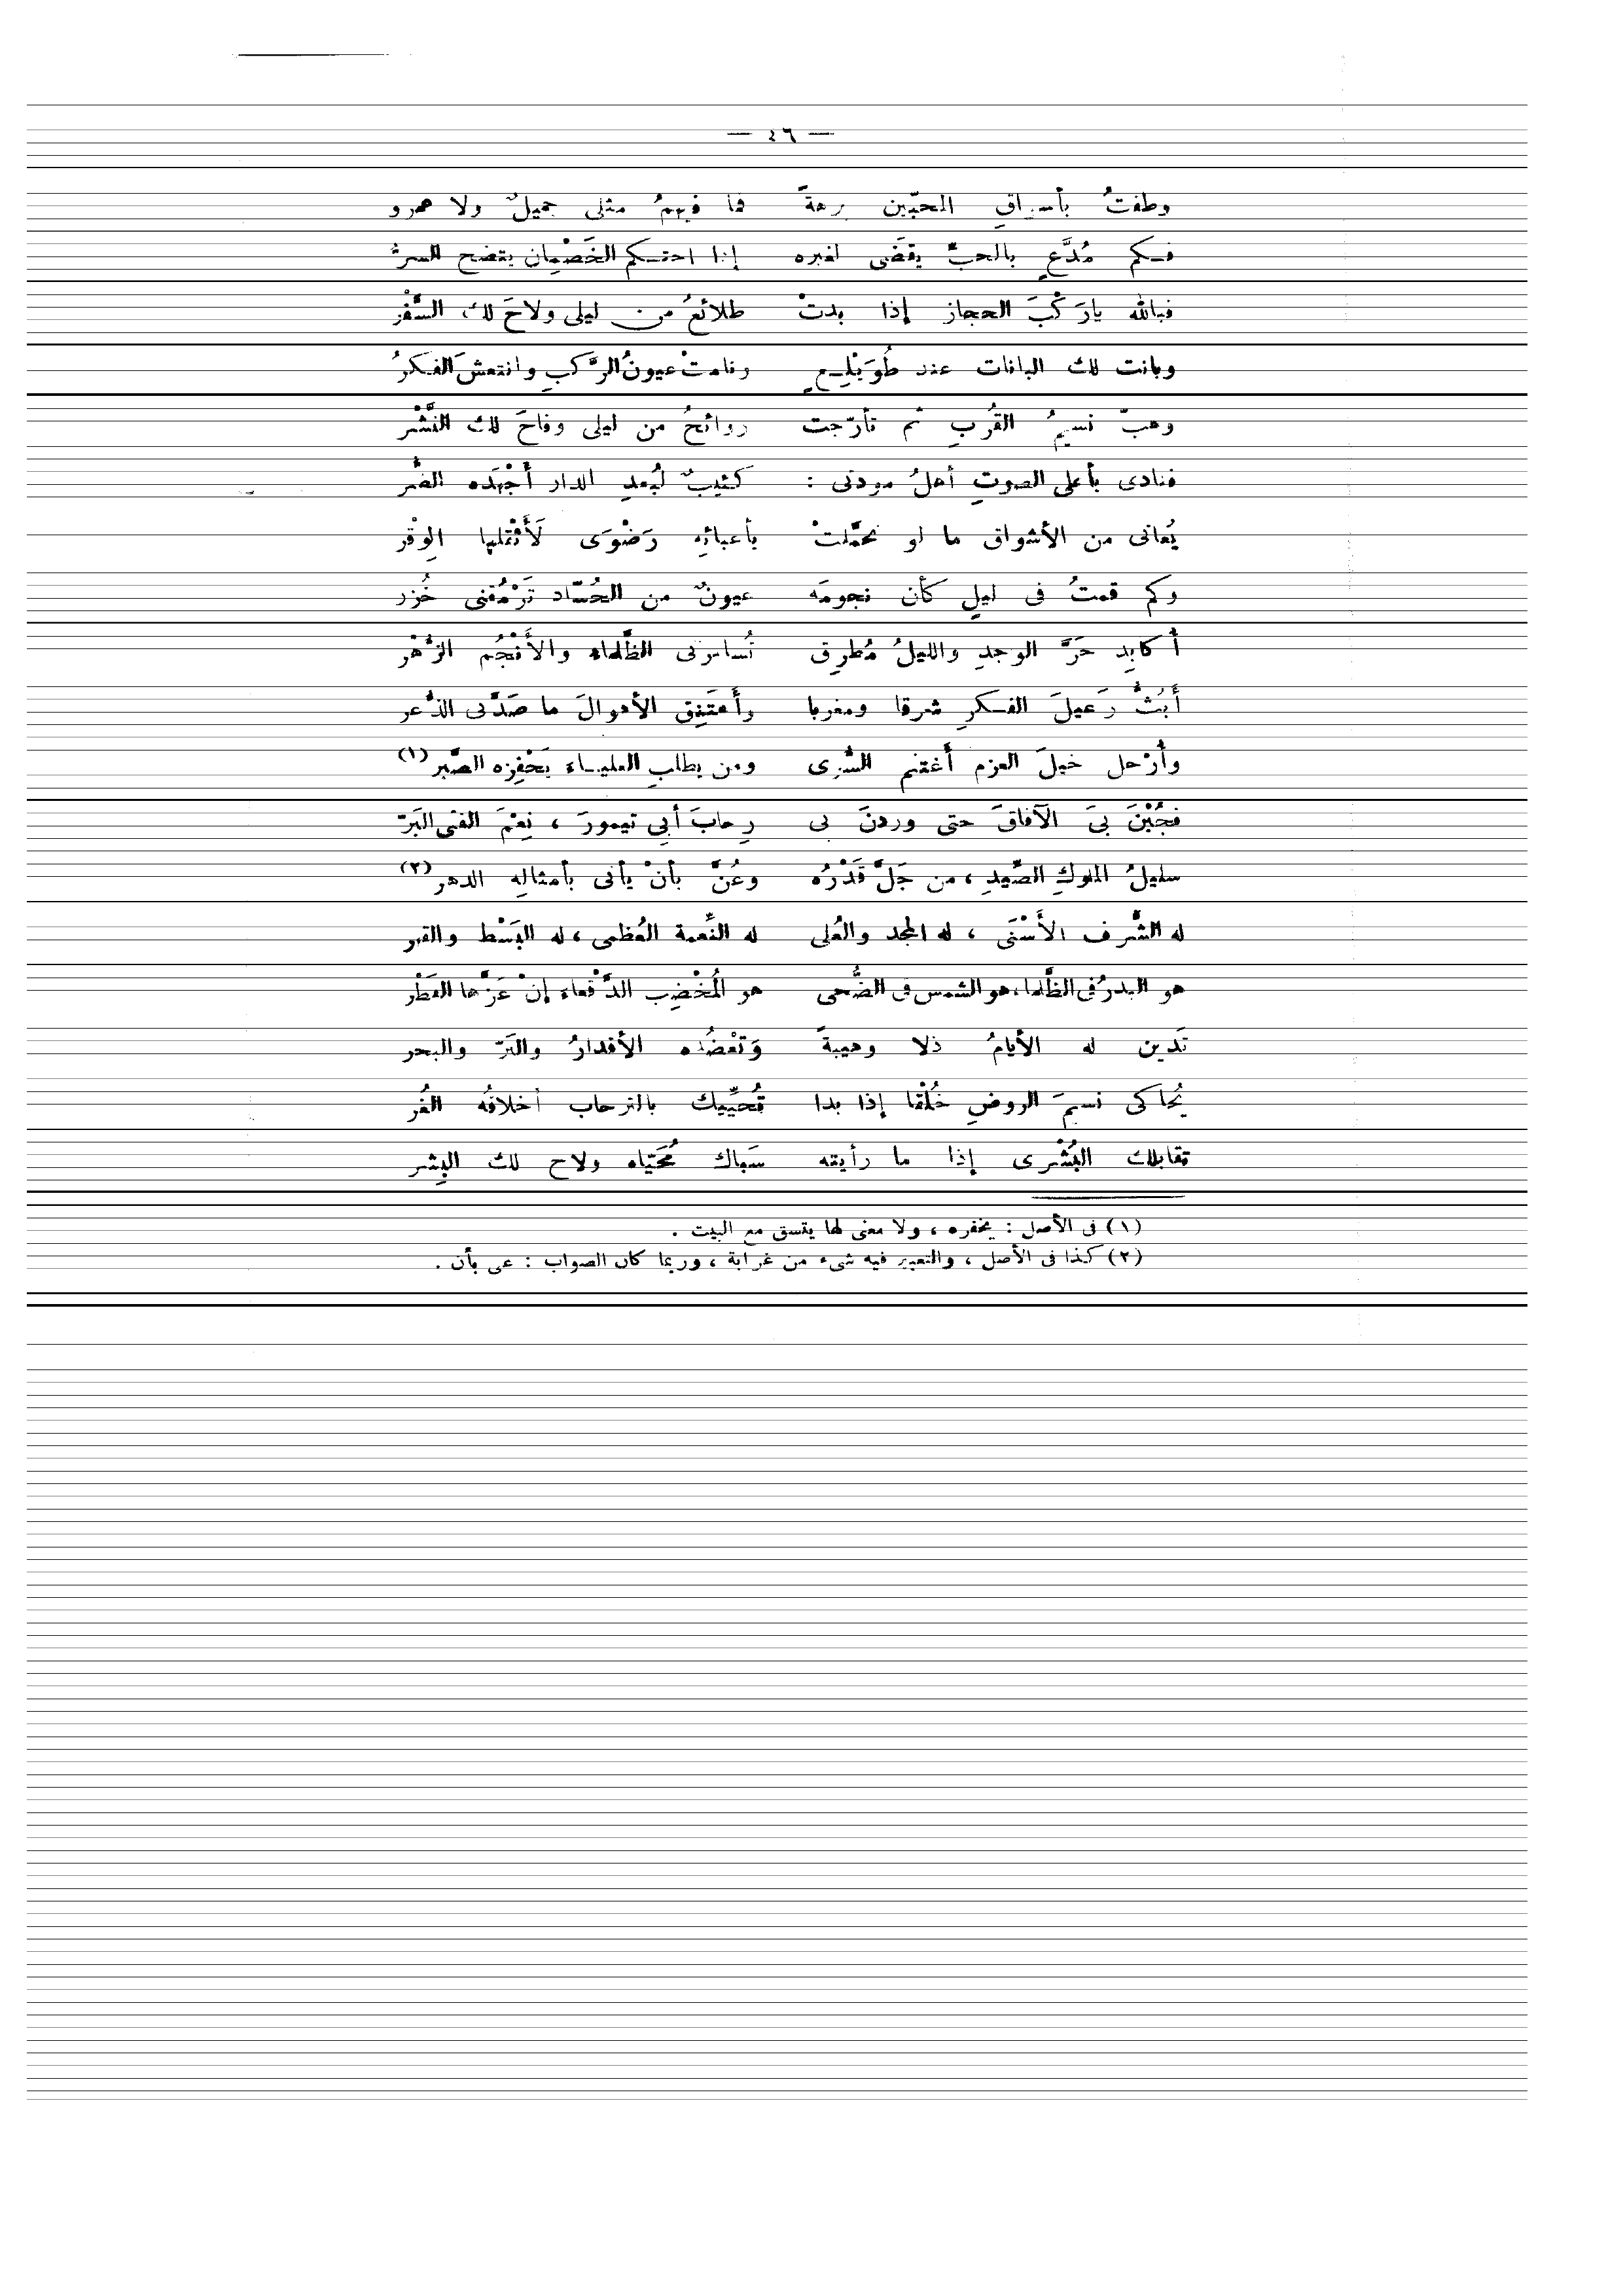 — ٤٦ —
وطفتُ بأسواقِ المحبّين برهةً فما فيهمُ مثلى جميلٌ ولا عمرو
فكم مُدَّعٍ بالحبِّ يقضَى لغيره إذا احتكم الخَصْمان يتضح السرُّ
فبالله يا رَكْبَ الحجاز إذا بدتْ طلائعُ من ليلى ولاحَ لك السَّفْر
وبانت لك البانات عند طُوَيْلِعٍ ونامتْ عيونُ الرَّكبِ وانتعشَ الفكرُ
وهبّ نسيمُ القُربِ ثم تأرّجت روائحُ من ليلى وفاحَ لك النَّشْر
فنادى بأعلى الصوتِ أهلُ مودتى : كئيبٌ لبُعدِ الدار أَجْهَده الضُّر
يُعانى من الأشواق ما لو تحمَّلتْ بأعبائِه رَضْوَى لَأَثْقلها الوِقْر
وكم قمتُ فى ليلٍ كأن نجومَه عيونٌ من الحُسّاد تَرْمُقنى خُزر
أُكابِد حَرَّ الوجدِ والليلُ مُطرِق تُسامرنى الظَّلماء والأَنْجُم الزُّهْر
أَبُثُّ رَعيلَ الفكرِ شرقا ومغربا وأَعتَنِق الأهوالَ ما صَدَّنى الذُّعر
وأَرْحل خيلَ العزم أَغتنم السُّرى ومن يطلبِ العلياء يَحْفِزه الصَّبر (١)
فجُبْنَ بىَ الآفاقَ حتى وردنَ بى رِحابَ أبي تيمورَ ، نِعْمَ الفتى البَرّ
سليلُ الملوكِ الصِّيدِ ، من جَلَّ قَدْرُه وعُنَّ بأنْ يأتى بأمثالِه الدهر (٢)
له الشَّرف الأَسْنَى ، له المجد والعُلى له النِّعمة العُظمى ، له البَسْط والقهر
هو البدرُ فى الظَّلماء، هو الشمس فى الضُّحى هو المُخْضِب الدَّقْعاء إنْ عَزَّها القَطْر
تَدين له الأيامُ ذلا وهيبةً وَتَعْضُده الأقدارُ والبَرّ والبحر
يُحاكى نسيمَ الروضِ خُلْقا إذا بدا تُحيِّيك بالترحاب أخلاقُه الغُر
تقابلك البُشْرى إذا ما رأيته سَباك مُحَيّاه ولاح لك البِشر
(١) فى الأصل : يخفره ، ولا معنى لها يتسق مع البيت .
(٢) كذا فى الأصل ، والتعبير فيه شىء من غرابة ، وربما كان الصواب : عى بأن .